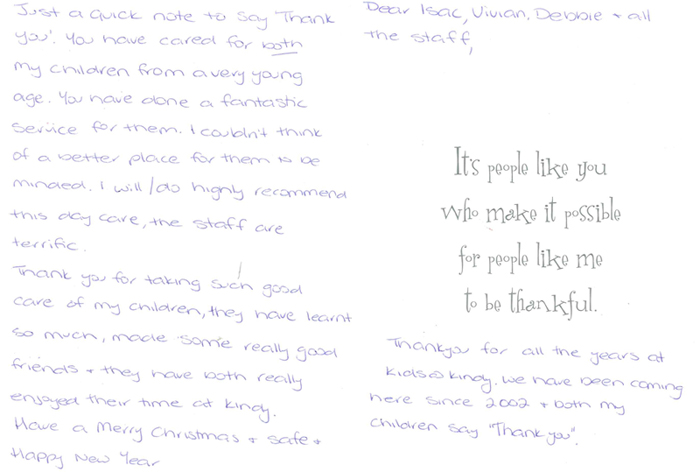 Just a quick note to say Thank
you! You have cared for both
my children from a very young
age. You have done a fantastic
service for them. I couldn't think
of a better place for them to be
minded. I will/do highly recommend
this day care, the staff are
terrific.
Thank you for taking such good
care of my children, they have learnt
so much, made some really good
friends + they have both really
enjoyed their time at kindy.
Have a Merry Christmas + safe +
Happy New Year
Dear Isac, Vivian, Debbie + all
the staff,
It's people like you
who make it possible
for people like me
to be thankful.
Thankyou for all the years at
kids@kindy. We have been coming
here since 2002 + both my
children say "Thank you".